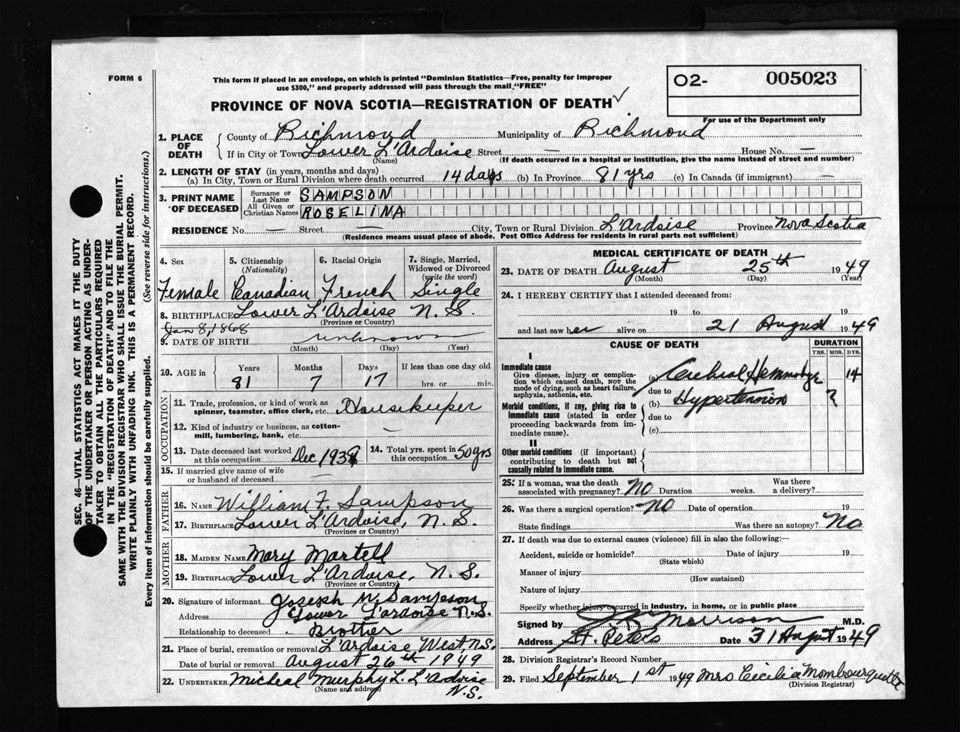 FORM 6
This form if placed in an envelope, on which is printed "Dominion Statistics—Free, penalty for improper
use $300," and properly addressed will pass through the mail "FREE"
O2- 005023
PROVINCE OF NOVA SCOTIA—REGISTRATION OF DEATH
For use of the Department only
1. PLACE OF DEATH County of Richmond Municipality of Richmond
If in City or Town Lower L'Ardoise Street — House No. —
(Name) (If death occurred in a hospital or institution, give the name instead of street and number)
2. LENGTH OF STAY (in years, months and days)
(a) In City, Town or Rural Division where death occurred 14 days (b) In Province 81 yrs (c) In Canada (if immigrant) —
3. PRINT NAME OF DECEASED Surname or Last Name SAMPSON
All Given or Christian Names ROSELINA
RESIDENCE No. — Street — City, Town or Rural Division L'Ardoise Province Nova Scotia
(Residence means usual place of abode. Post Office Address for residents in rural parts not sufficient)
SEC. 46—VITAL STATISTICS ACT MAKES IT THE DUTY
OF THE UNDERTAKER OR PERSON ACTING AS UNDER-
TAKER TO OBTAIN ALL THE PARTICULARS REQUIRED
IN THE "REGISTRATION OF DEATH" AND TO FILE THE
SAME WITH THE DIVISION REGISTRAR WHO SHALL ISSUE THE BURIAL PERMIT.
WRITE PLAINLY WITH UNFADING INK. THIS IS A PERMANENT RECORD.
Every item of information should be carefully supplied. (See reverse side for instructions.)
4. Sex 5. Citizenship (Nationality) 6. Racial Origin 7. Single, Married, Widowed or Divorced (write the word)
Female Canadian French Single
8. BIRTHPLACE Lower L'Ardoise N.S.
(Province or Country)
Jan 8, 1868
9. DATE OF BIRTH unknown
(Month) (Day) (Year)
10. AGE in Years Months Days If less than one day old
81 7 17 hrs. or min.
OCCUPATION
11. Trade, profession, or kind of work as
spinner, teamster, office clerk, etc. Housekeeper
12. Kind of industry or business, as cotton-
mill, lumbering, bank, etc. —
13. Date deceased last worked at this occupation Dec 1939 14. Total yrs. spent in this occupation 50 yrs
15. If married give name of wife
or husband of deceased
FATHER
16. NAME William F. Sampson
17. BIRTHPLACE Lower L'Ardoise, N.S.
(Province or Country)
MOTHER
18. MAIDEN NAME Mary Martell
19. BIRTHPLACE Lower L'Ardoise, N.S.
(Province or Country)
20. Signature of informant Joseph M Sampson
Address Lower L'ardoise N.S.
Relationship to deceased Brother
21. Place of burial, cremation or removal L'Ardoise West, N.S.
Date of burial or removal August 26th 1949
22. UNDERTAKER Micheal Murphy L. L'Ardoise
(Name and address) N.S.
MEDICAL CERTIFICATE OF DEATH
23. DATE OF DEATH August 25th 1949
(Month) (Day) (Year)
24. I HEREBY CERTIFY that I attended deceased from:
19 to 19
and last saw her alive on 21 August 1949
CAUSE OF DEATH DURATION
YRS. MOS. DYS.
I
Immediate cause
Give disease, injury or complica-
tion which caused death, NOT the
mode of dying, such as heart failure,
asphyxia, asthenia, etc.
(a) Cerebral Hemorrhage 14
due to
Morbid conditions, if any, giving rise to
immediate cause (stated in order
proceeding backwards from im-
mediate cause).
(b) Hypertension ?
due to
(c)
II
Other morbid conditions (if important)
contributing to death but not
causally related to immediate cause.
25. If a woman, was the death associated with pregnancy? NO Duration weeks. Was there a delivery?
26. Was there a surgical operation? NO Date of operation 19
State findings Was there an autopsy? No
27. If death was due to external causes (violence) fill in also the following:—
Accident, suicide or homicide? Date of injury 19
(State which)
Manner of injury
(How sustained)
Nature of injury
Specify whether injury occurred in industry, in home, or in public place
Signed by Morrison M.D.
Address St. Peters Date 31 August 1949
28. Division Registrar's Record Number
29. Filed September 1st 1949 Mrs Cecilia Mombourquette
(Division Registrar)